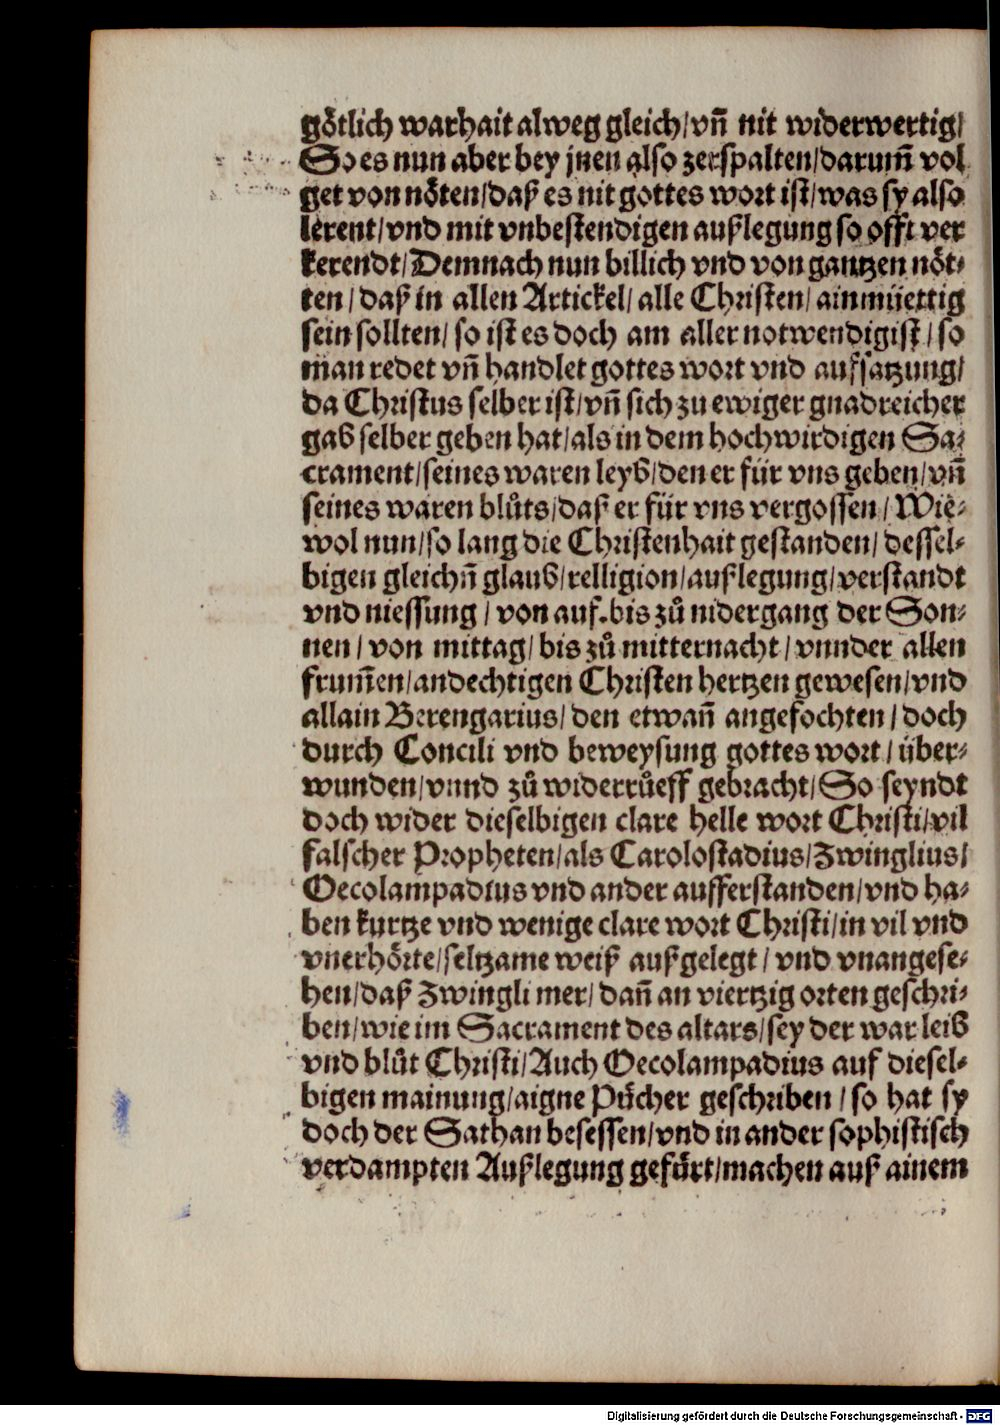 götlich warhait alweg gleich/vñ nit widerwertig/
So es nun aber bey jnen also zerspalten/darum̃ vol
get von nöten/daß es nit gottes wort ist/was sy also
lerent/vnd mit vnbestendigen außlegung so offt ver
kerendt/Demnach nun billich vnd von gantzen nöt⸗
ten/daß in allen Artickel/alle Christen/ainmüettig
sein sollten/so ist es doch am aller notwendigist/so
man redet vñ handlet gottes wort vnd aufsatzung/
da Christus selber ist/vñ sich zu ewiger gnadreicher
gab selber geben hat/als in dem hochwirdigen Sa⸗
crament/seines waren leyb/den er für vns geben/vñ
seines waren blůts/daß er für vns vergossen/Wie⸗
wol nun/so lang die Christenhait gestanden/dessel⸗
bigen gleichñ glaub/relligion/außlegung/verstandt
vnd niessung/von auf.bis zů nidergang der Son⸗
nen/von mittag/bis zů mitternacht/vnnder allen
frum̃en/andechtigen Christen hertzen gewesen/vnd
allain Berengarius/den etwañ angefochten/doch
durch Concili vnd beweysung gottes wort/über⸗
wunden/vnnd zů widerrůeff gebracht/So seyndt
doch wider dieselbigen clare helle wort Christi/vil
falscher Propheten/als Carolostadius/Zwinglius/
Oecolampadius vnd ander aufferstanden/vnd ha⸗
ben kurtze vnd wenige clare wort Christi/in vil vnd
vnerhörte/seltzame weiß außgelegt/vnd vnangese⸗
hen/daß Zwingli mer/dañ an viertzig orten geschri⸗
ben/wie im Sacrament des altars/sey der war leib
vnd blůt Christi/Auch Oecolampadius auf diesel⸗
bigen mainung/aigne Pücher geschriben/so hat sy
doch der Sathan besessen/vnd in ander sophistisch
verdampten Außlegung gefürt/machen auß ainem
Digitalisierung gefördert durch die Deutsche Forschungsgemeinschaft - DFG